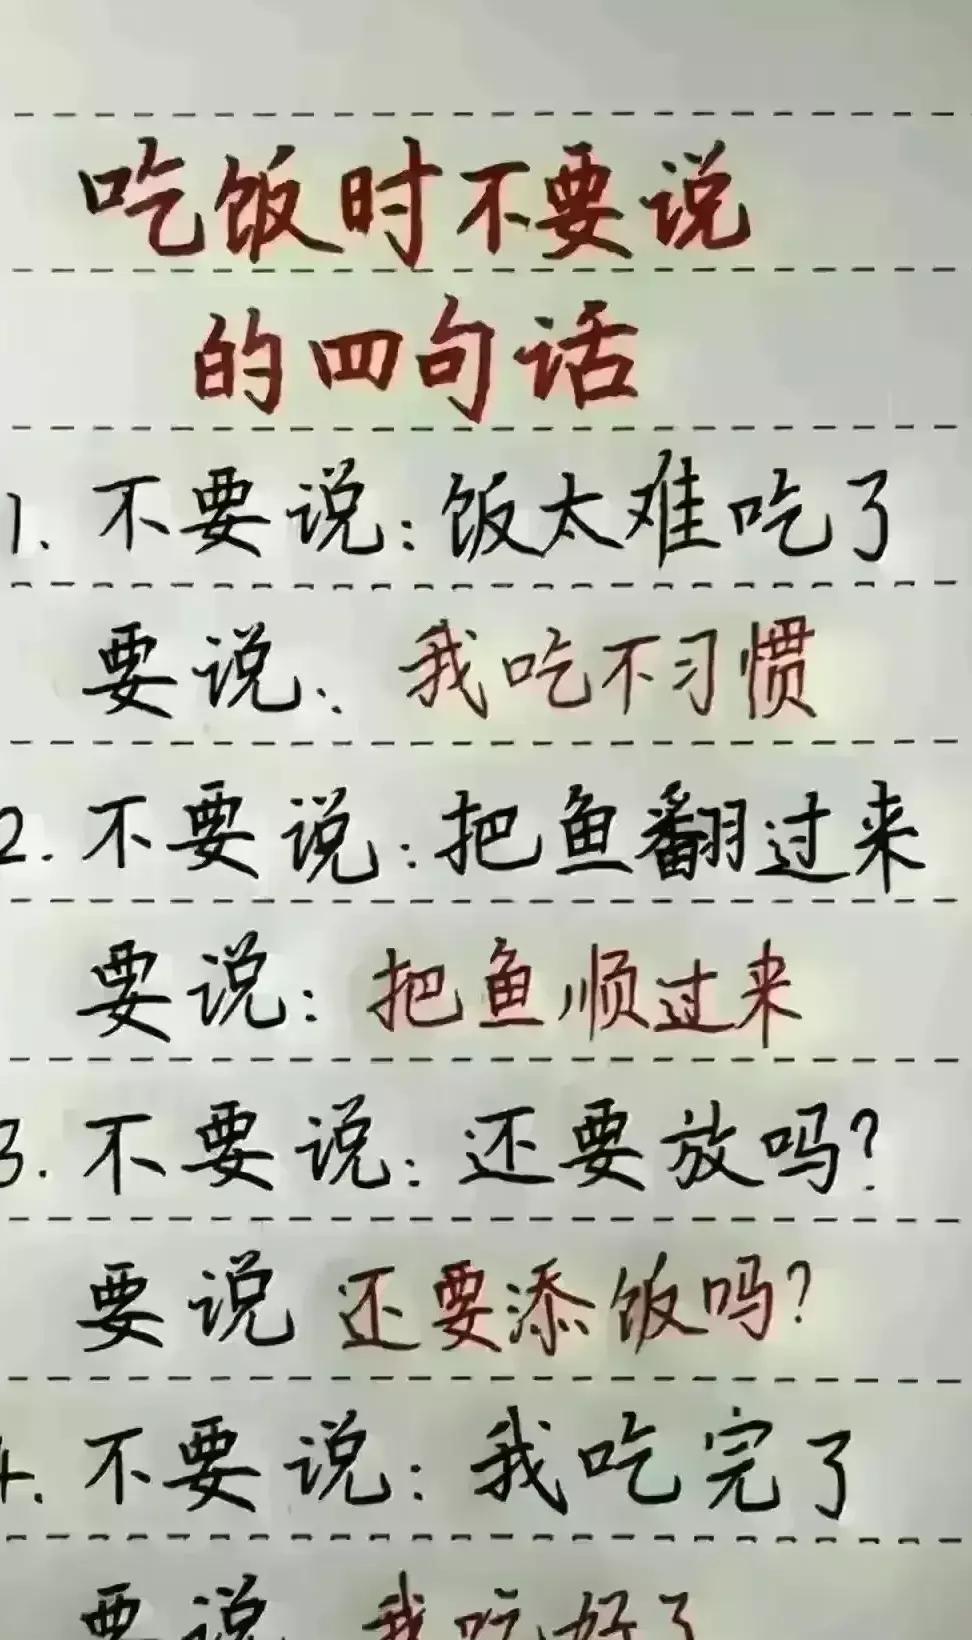 吃饭时不要说
的四句话
1. 不要说:饭太难吃了
要说: 我吃不习惯
2. 不要说:把鱼翻过来
要说:把鱼顺过来
3. 不要说:还要放吗?
要说 还要添饭吗?
4. 不要说:我吃完了
要说 我吃好了